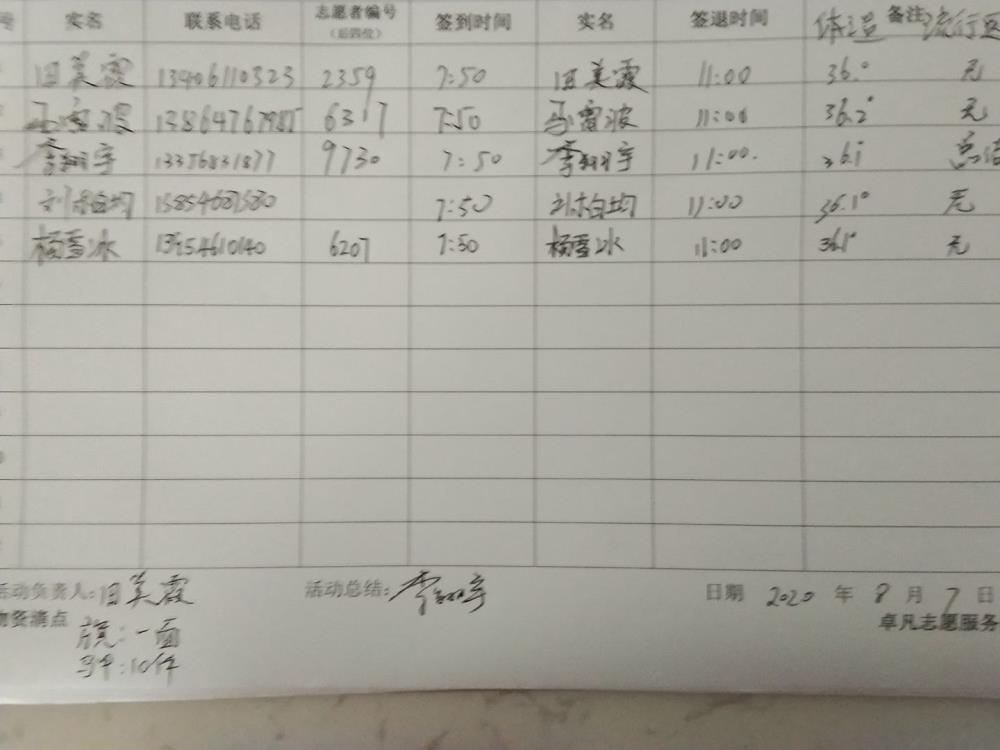 号 实名 联系电话 志愿者编号 签到时间 实名 签退时间 体温 备注 流行区
（后四位）
田美霞 13406110323 2359 7:50 田美霞 11:00 36.° 无
6317 7:50 11:00 36.2° 无
李翔宇 13356831877 9730 7:50 李翔宇 11:00. 36.1
15854687580 7:50 11:00 36.1° 无
杨雪冰 13954610140 6207 7:50 杨雪冰 11:00 36.1° 无
活动负责人: 田美霞 活动总结: 李翔宇 日期 2020 年 8 月 7 日
物资清点 卓凡志愿服务
旗:一面
马甲:10件